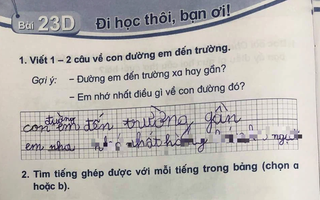 Bài 23D Đi học thôi, bạn ơi!
1. Viết 1 – 2 câu về con đường em đến trường.
Gợi ý: – Đường em đến trường xa hay gần?
– Em nhớ nhất điều gì về con đường đó?
đường
con em đến trường gần
em nhà nhất hàng
2. Tìm tiếng ghép được với mỗi tiếng trong bảng (chọn a
hoặc b).